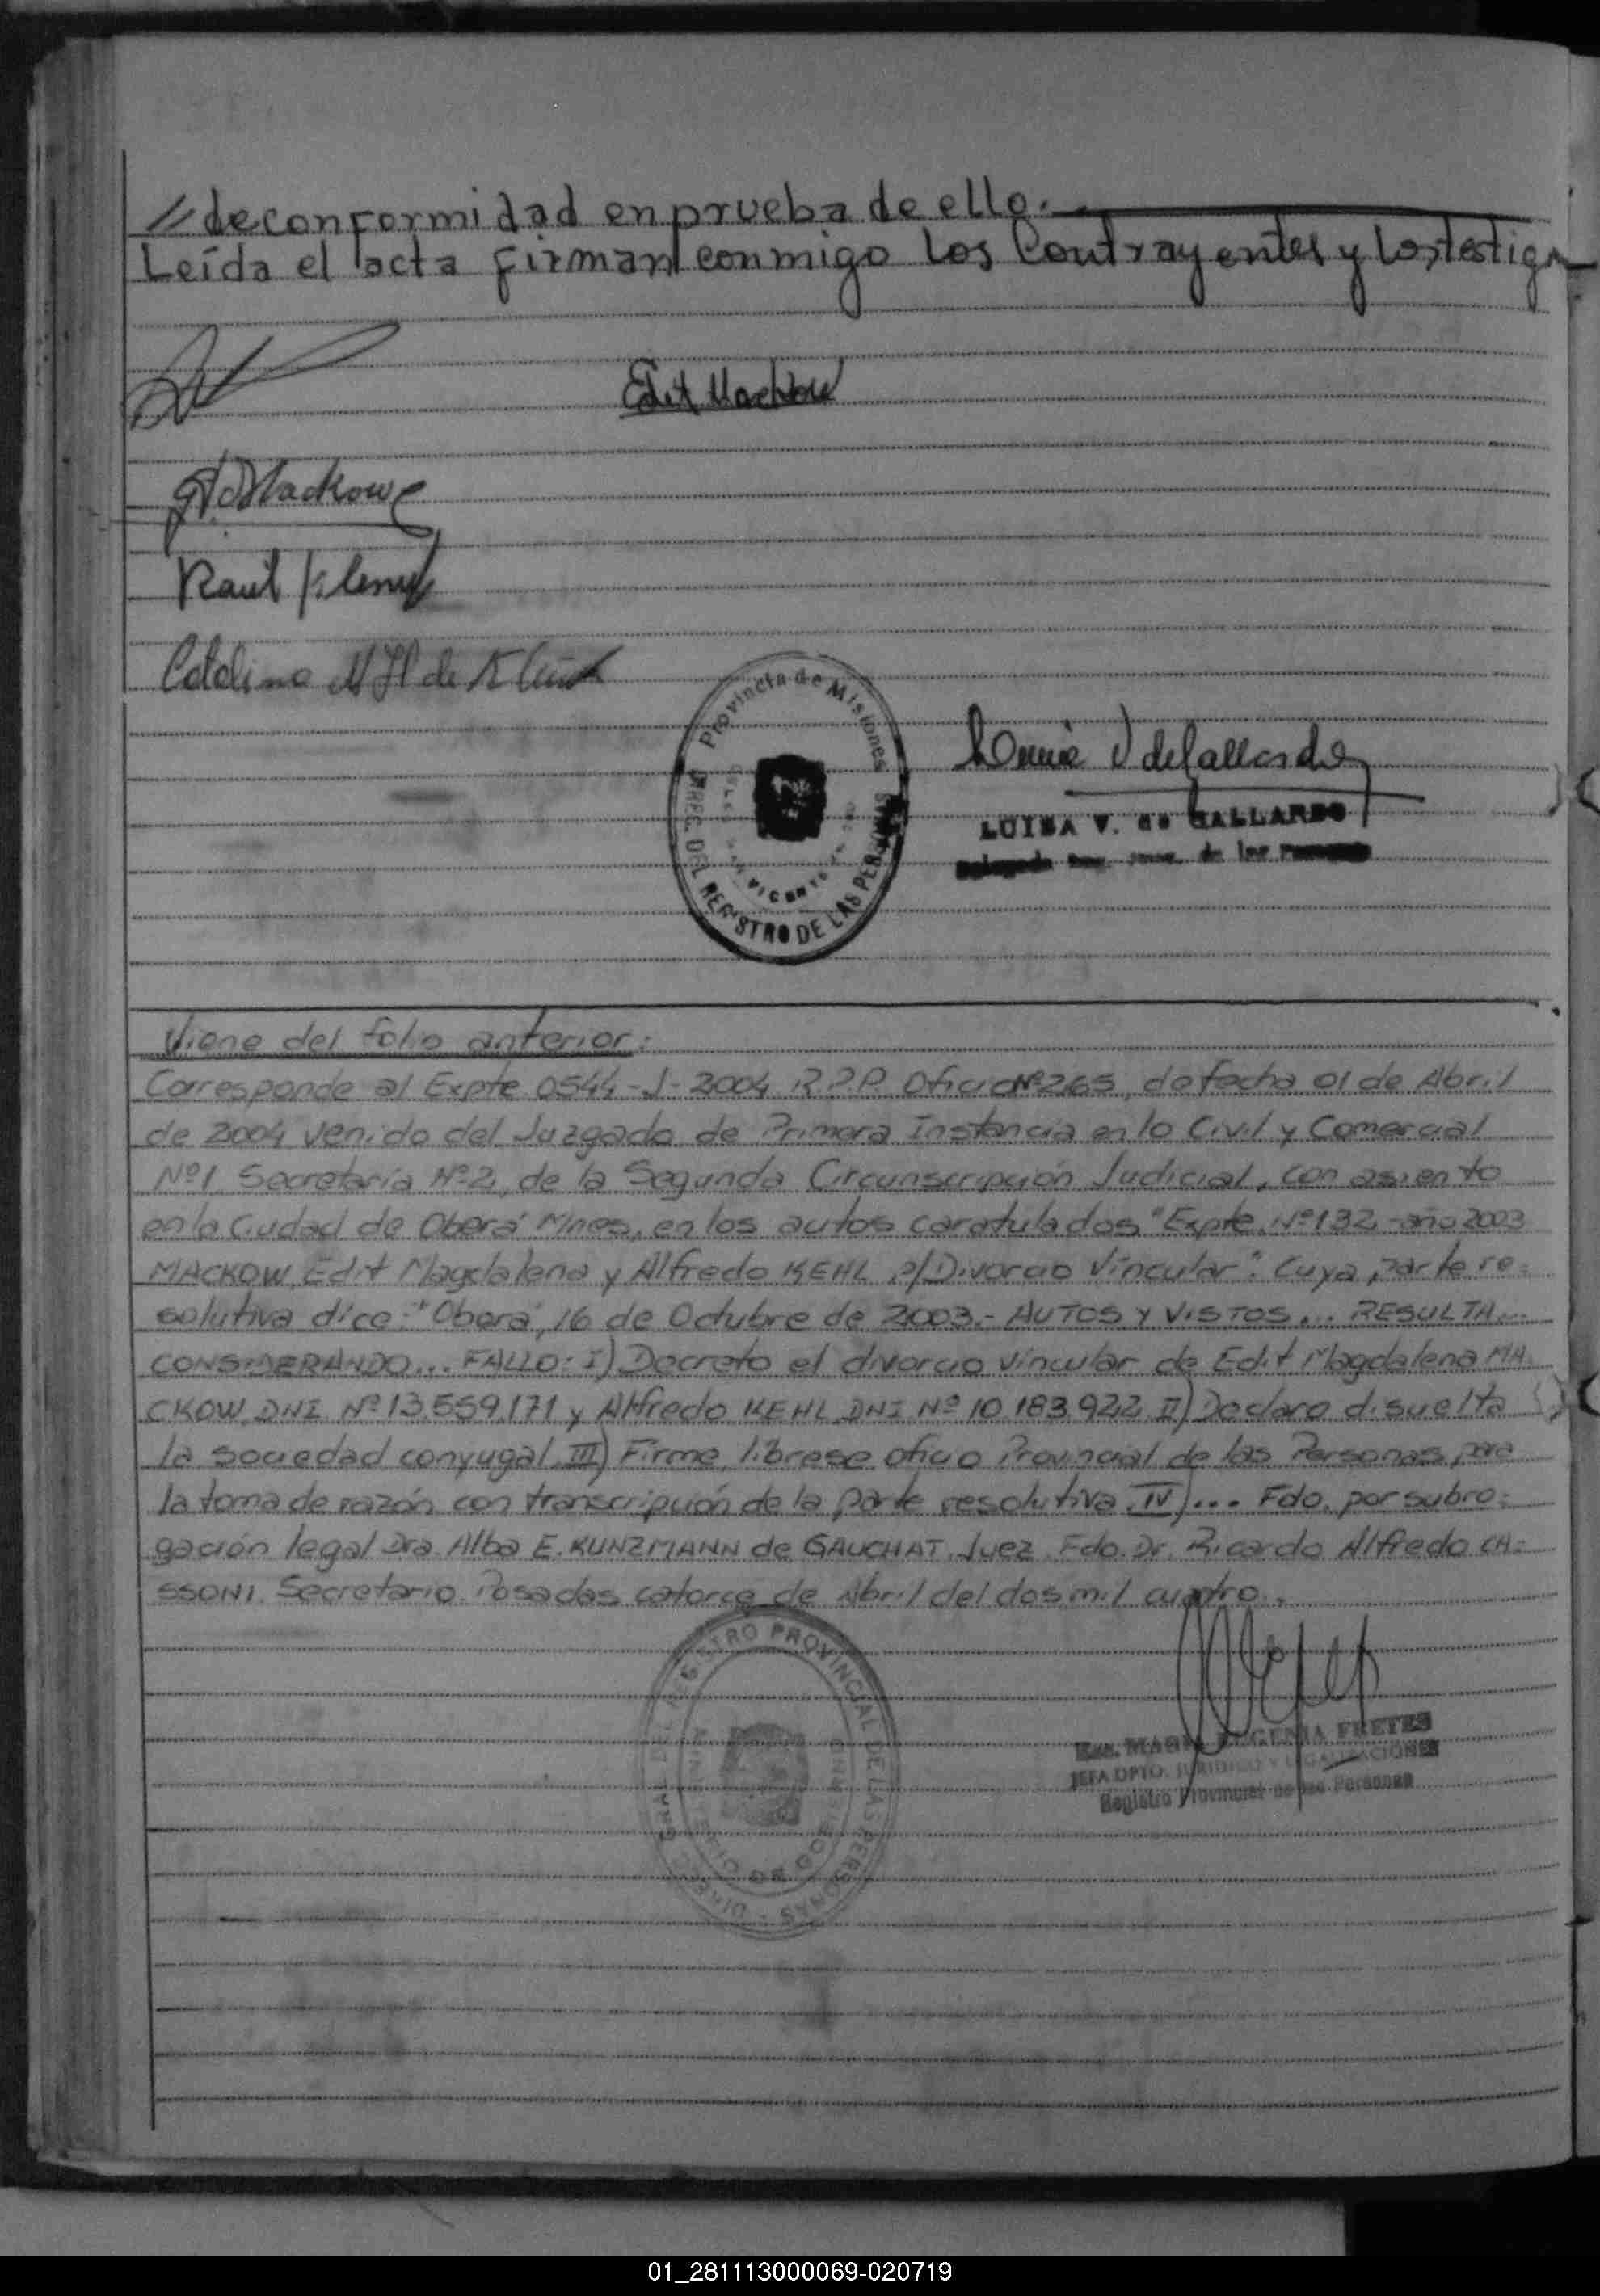 // de conformidad en prueba de ello.-
Leída el acta firman conmigo los Contrayentes y los testigo
Edit Mackow
Mackow
Raul
Catalina de
Provincia de Misiones
DIREC. DEL REGISTRO DE LAS PERSONAS
VICENTE
LUISA V. de GALLARDO
de las
Viene del folio anterior:
Corresponde al Expte 0544-J-2004 R.P.P. Oficio Nº 265, de fecha 01 de Abril
de 2004 venido del Juzgado de Primera Instancia en lo Civil y Comercial
Nº1 Secretaría Nº2, de la Segunda Circunscripción Judicial, con asiento
en la Ciudad de Oberá Mnes, en los autos caratulados "Expte. Nº132-año 2003
MACKOW, Edit Magdalena y Alfredo KEHL p/Divorcio Vincular". Cuya parte re-
solutiva dice: "Oberá, 16 de Octubre de 2003.- AUTOS Y VISTOS... RESULTA...
CONSIDERANDO... FALLO: I) Decreto el divorcio vincular de Edit Magdalena MA-
CKOW DNI Nº 13.559.171 y Alfredo KEHL DNI Nº 10.183.922 II) Declaro disuelta
la sociedad conyugal III) Firme, líbrese oficio Provincial de las Personas, para
la toma de razón con transcripción de la parte resolutiva. IV)... Fdo. por subro-
gación legal Dra. Alba E. KUNZMANN de GAUCHAT. Juez. Fdo. Dr. Ricardo Alfredo CA-
SSONI. Secretario. Posadas catorce de Abril del dos mil cuatro.
REGISTRO PROVINCIAL DE LAS PERSONAS
Esc. MARIA EUGENIA FRETES
JEFA DPTO. JURIDICO Y LEGALIZACIONES
Registro Provincial de las Personas
01_281113000069-020719